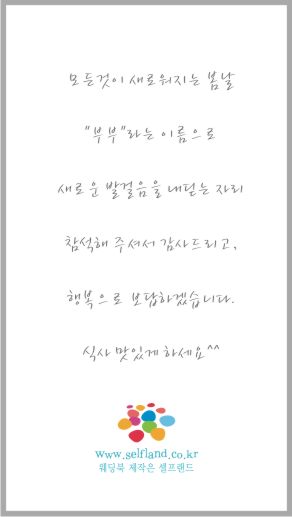 모든것이 새로워지는 봄날
"부부"라는 이름으로
새로운 발걸음을 내딛는 자리
참석해 주셔서 감사드리고,
행복으로 보답하겠습니다.
식사 맛있게 하세요^^
www.selfland.co.kr
웨딩북 제작은 셀프랜드